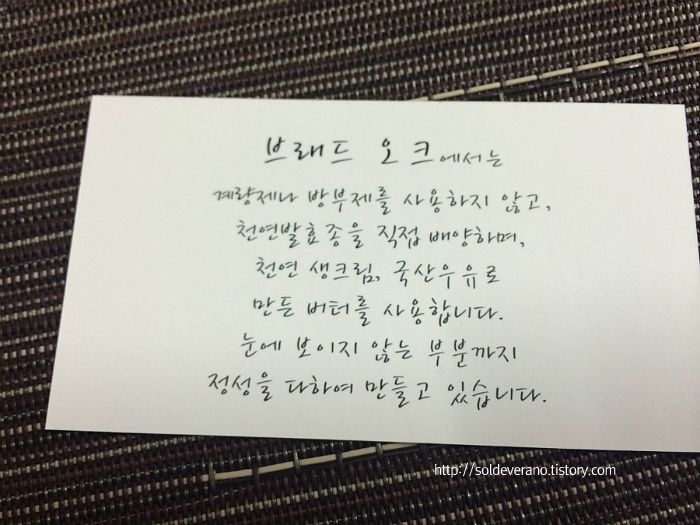 브래드 오크에서는
계량제나 방부제를 사용하지 않고,
천연발효종을 직접 배양하며,
천연 생크림, 국산우유로
만든 버터를 사용합니다.
눈에 보이지 않는 부분까지
정성을 다하여 만들고 있습니다.
http://soldeverano.tistory.com